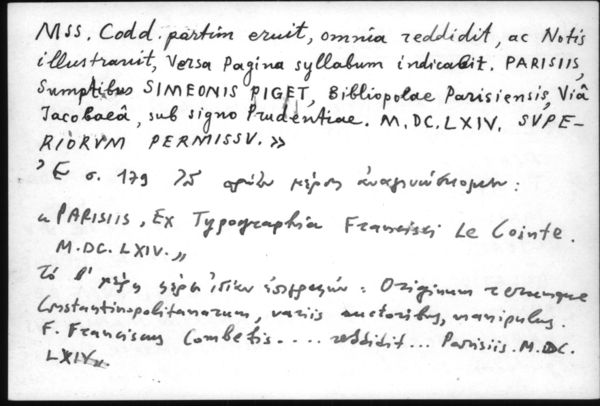 Mss. Codd. partim eruit, omnia reddidit, ac Notis
illustrauit, Versa Pagina syllabum indicabit. PARISIIS,
Sumptibus SIMEONIS PIGET, Bibliopolae Parisiensis, Viâ
Jacobaeâ, sub signo Prudentiae. M.DC.LXIV. SVPE-
RIORVM PERMISSV.»
Ἐν σ. 179 τοῦ πρώτου μέρους ἀναγινώσκομεν:
« PARISIIS, Ex Typographia Francisci Le Cointe.
M.DC.LXIV.»
Τὸ β' μέρος φέρει ἰδίαν ἐπιγραφήν: Originum rerumque
Constantinopolitanarum, variis auctoribus, manipulus.
F. Franciscus Combefis .... reddidit... Parisiis. M.DC.
LXIV».